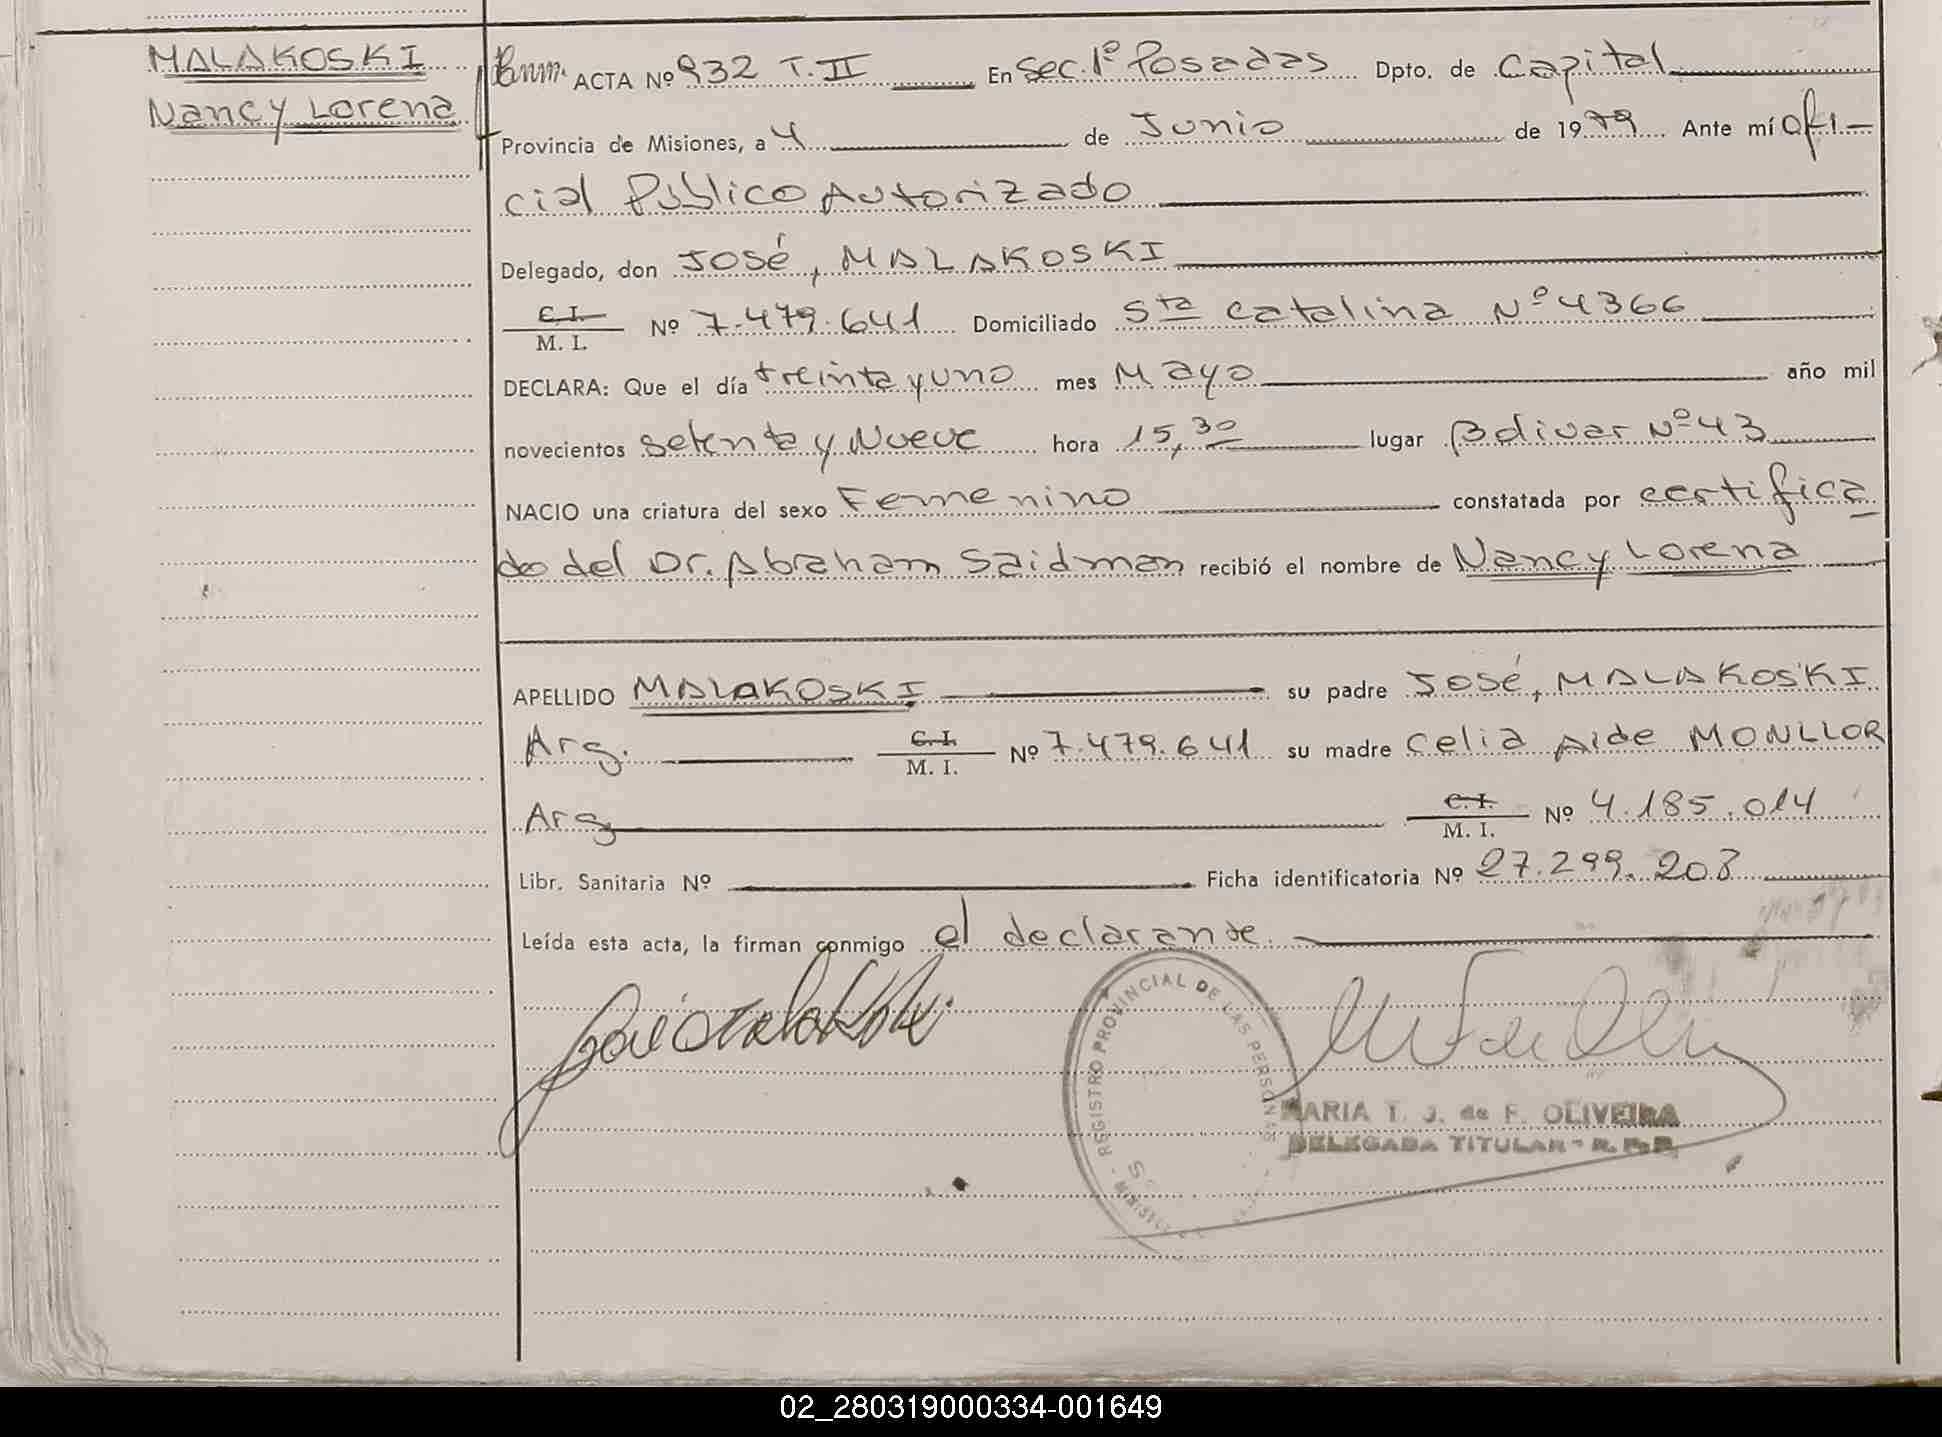 MALAKOSKI
Nancy Lorena
ACTA Nº 932 T. II En Sec. 1º Posadas Dpto. de Capital
Provincia de Misiones, a 4 de Junio de 1979 Ante mí Ofi-
cial Público Autorizado
Delegado, don José, MALAKOSKI
C.I. M. I. Nº 7.479.641 Domiciliado Sta Catalina Nº 4366
DECLARA: Que el día treinta y uno mes Mayo año mil
novecientos setenta y Nueve hora 15,30 lugar Bolivar Nº 43
NACIO una criatura del sexo Femenino constatada por certifica
do del Dr. Abraham Saidman recibió el nombre de Nancy Lorena
APELLIDO MALAKOSKI su padre José, MALAKOSKI
Arg. C.I. M. I. Nº 7.479.641 su madre Celia Aide MONLLOR
Arg C.I. M. I. Nº 4.185.014
Libr. Sanitaria Nº Ficha identificatoria Nº 27.299.203
Leída esta acta, la firman conmigo el declarante.
José Malakoski
REGISTRO PROVINCIAL DE LAS PERSONAS
MARIA T. J. de F. OLIVEIRA
DELEGADA TITULAR - R. P. P.
02_280319000334-001649